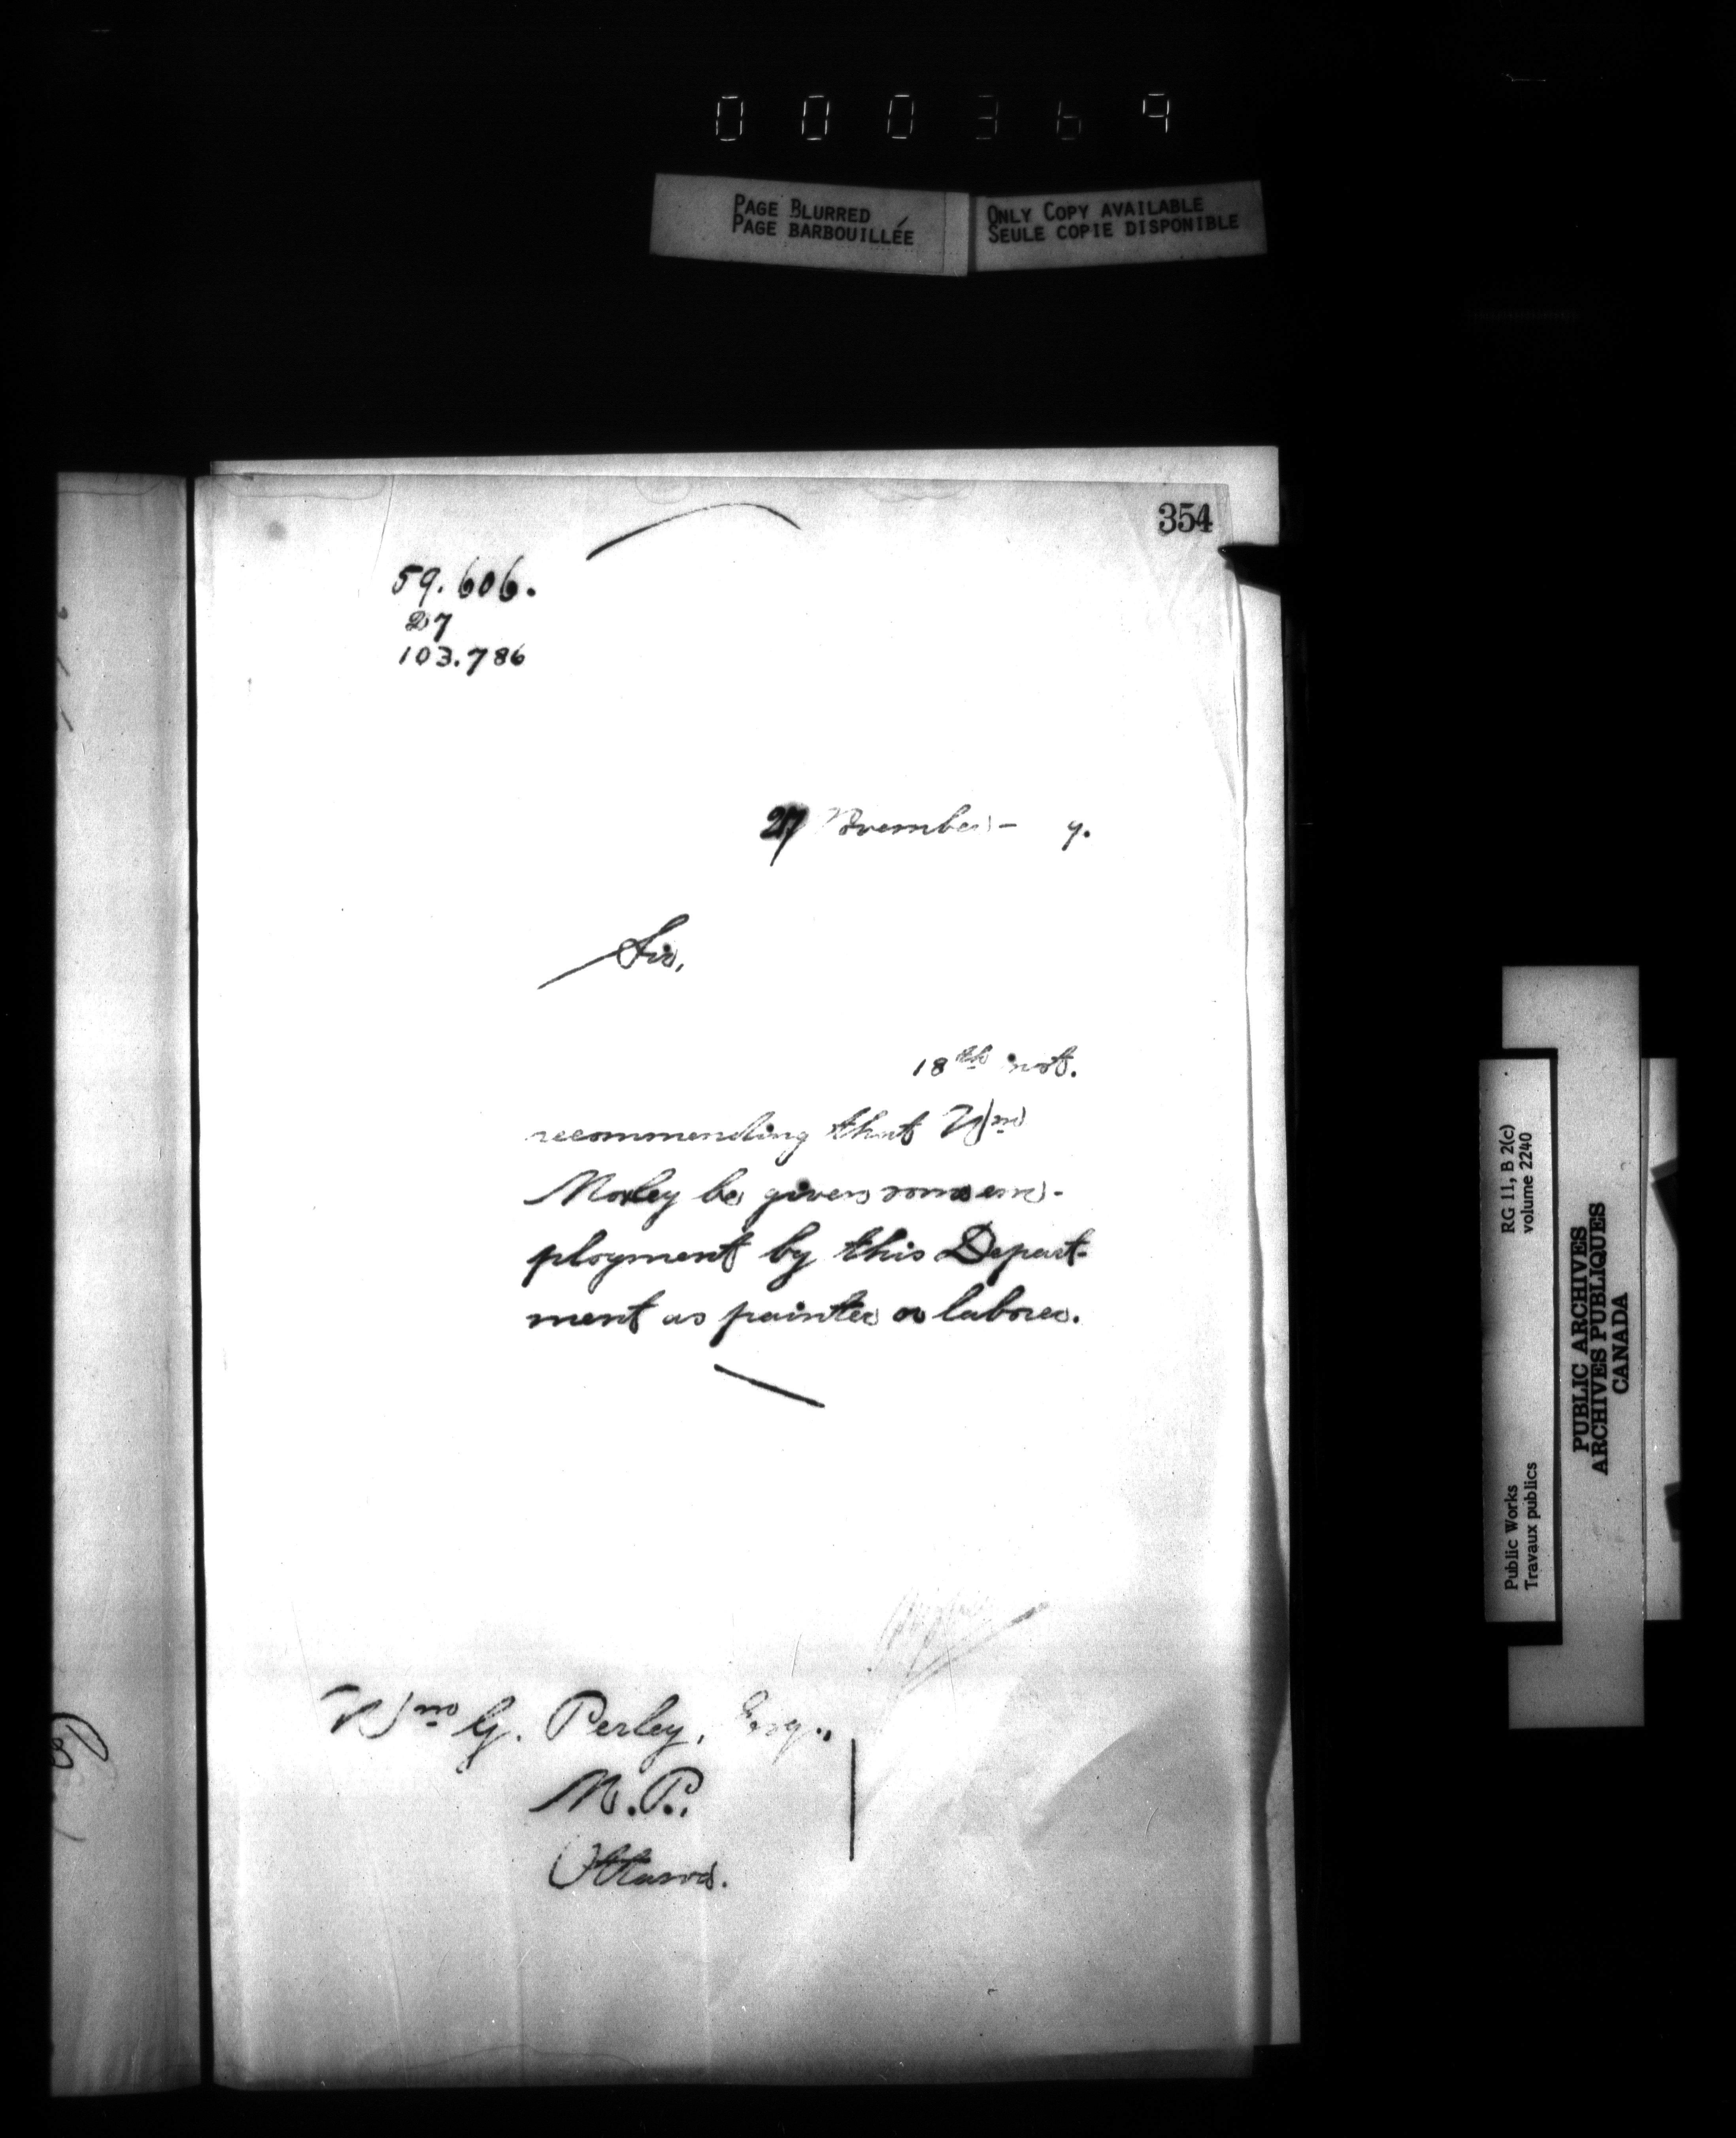 000369
PAGE BLURRED
PAGE BARBOUILLÉE
ONLY COPY AVAILABLE
SEULE COPIE DISPONIBLE
354
59.606.
27
103.786
27 November - 7.
Sir,
18th inst.
recommending that Wm
Morley be given some em-
ployment by this Depart-
ment as painter or laborer.
Wm G. Perley, Esq.,
M.P.,
Ottawa.
RG 11, B 2(c)
volume 2240
Public Works
Travaux publics
PUBLIC ARCHIVES
ARCHIVES PUBLIQUES
CANADA